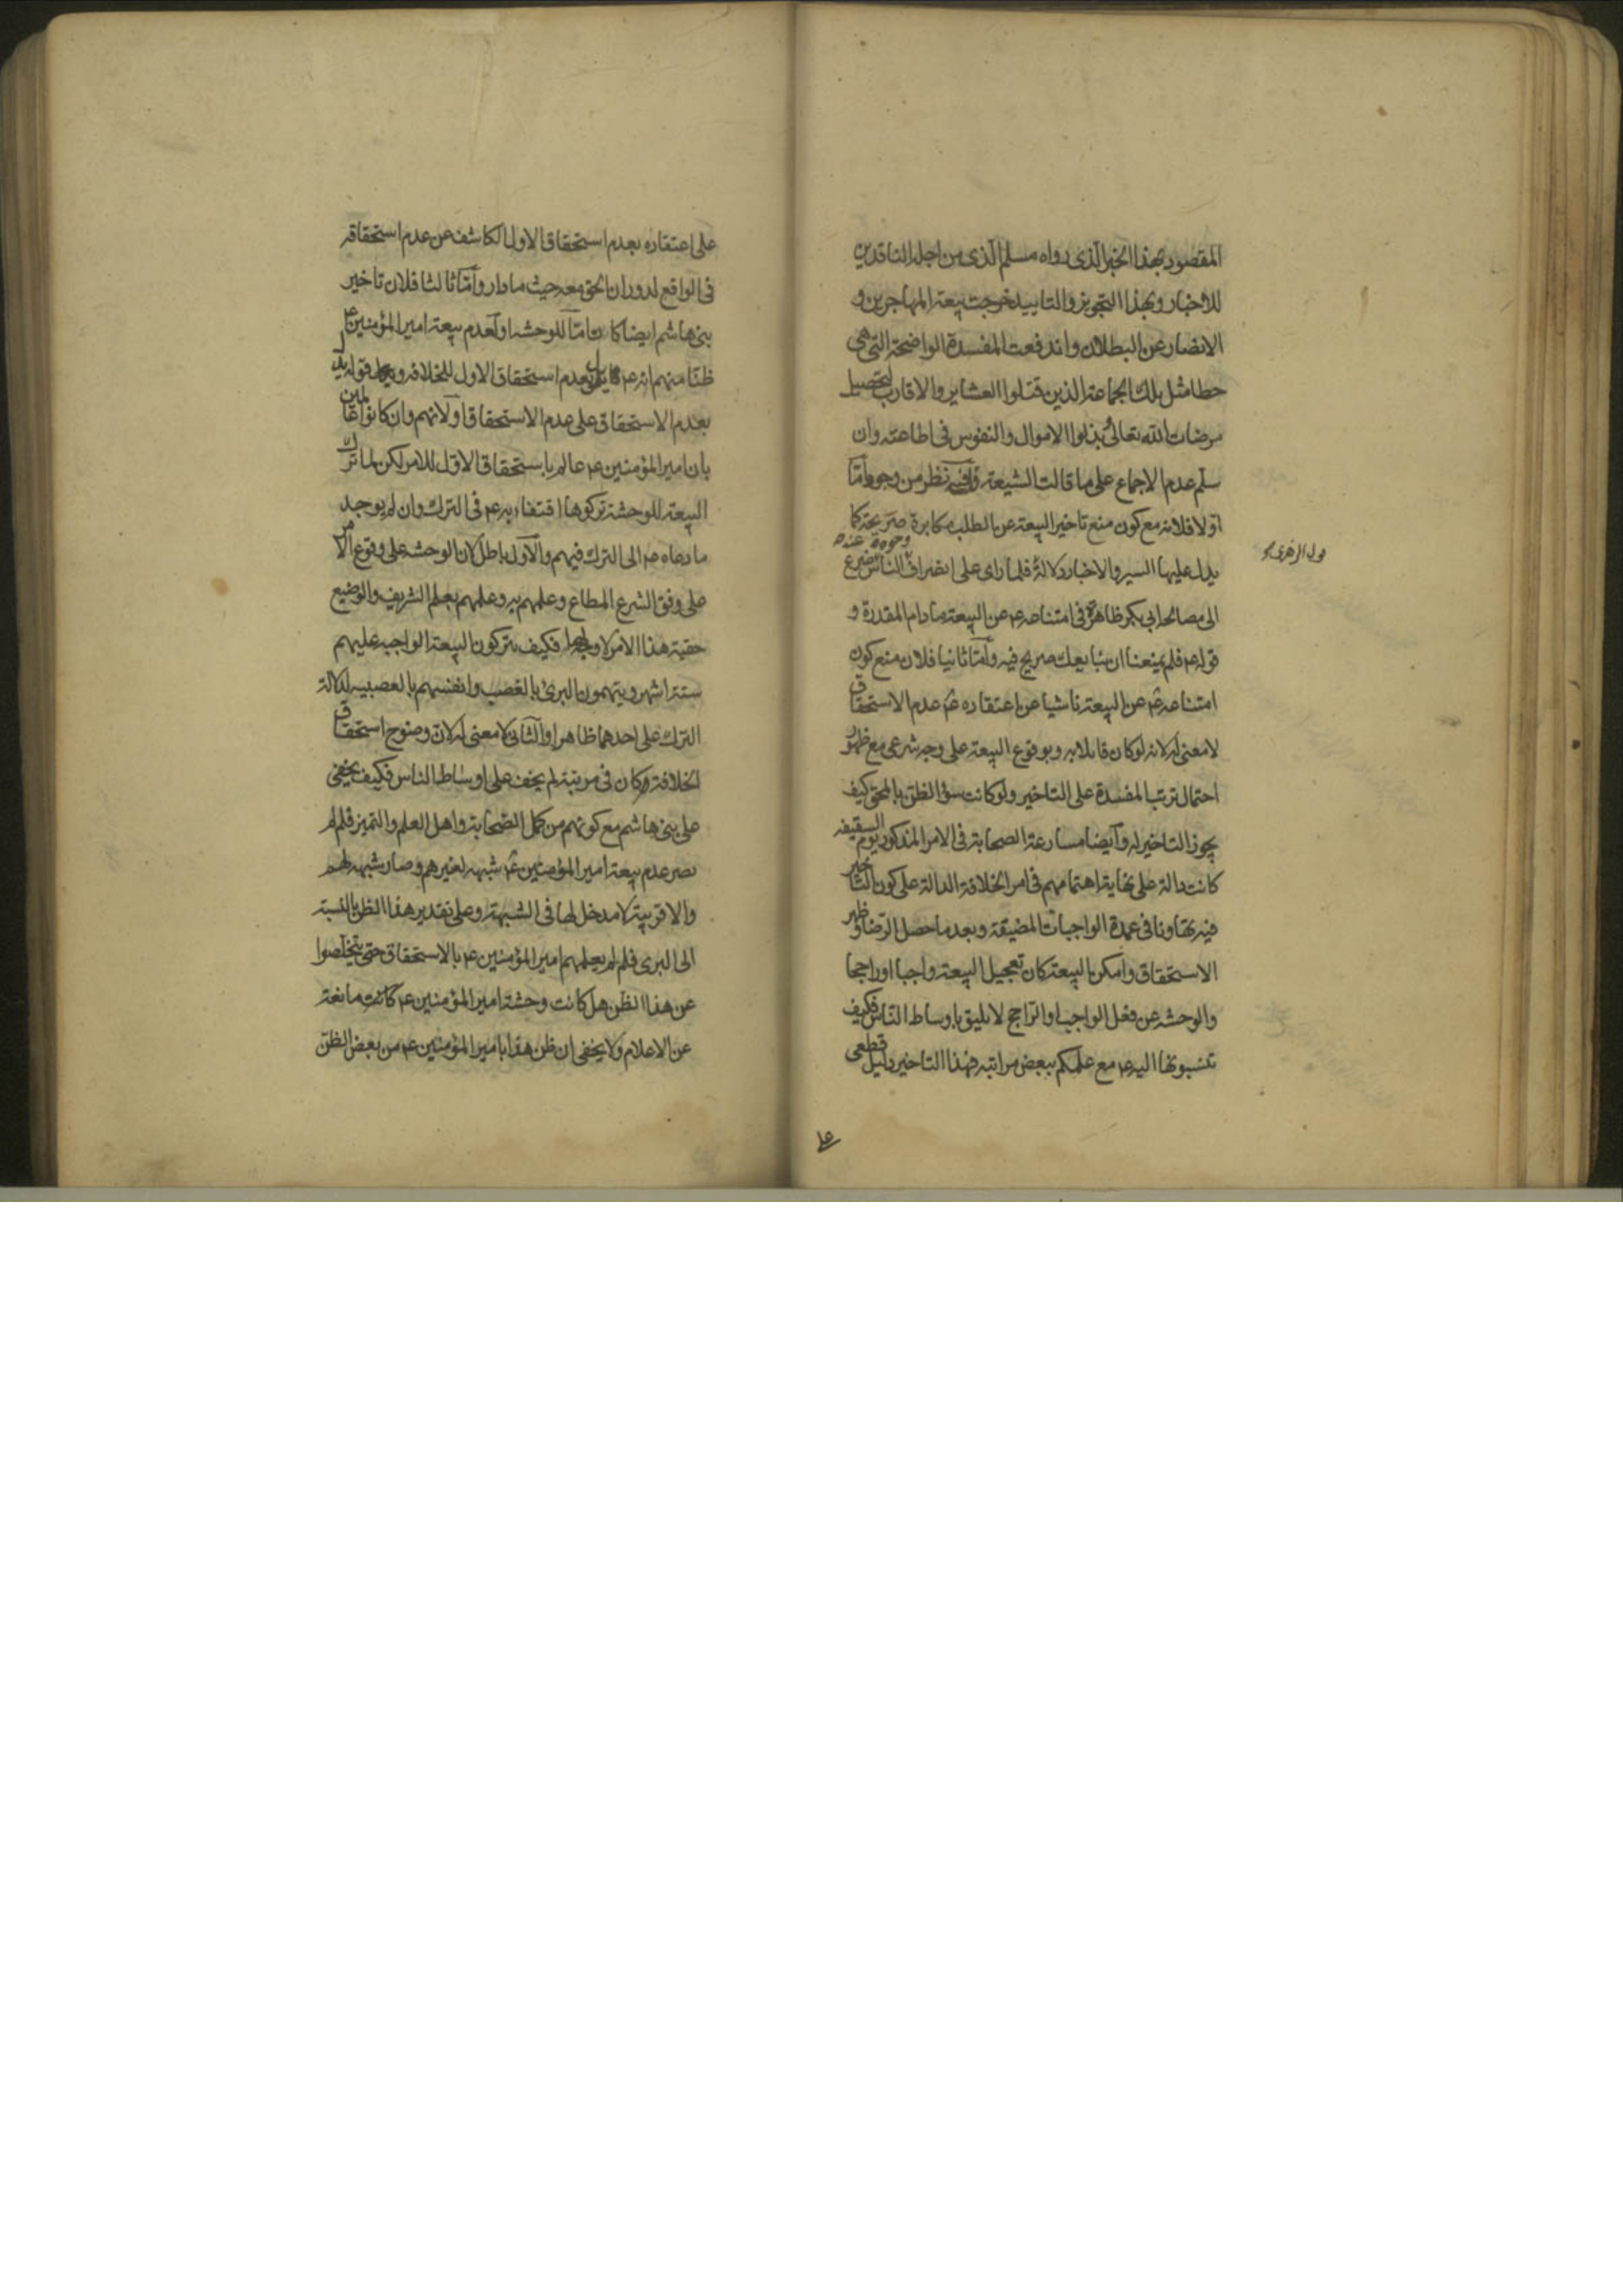 المقصود بهذا الخبر الذى رواه مسلم الذى من اجله الناقدين
للاخبار وبهذا التجويز والتاييد خرجت بيعة المهاجرين و
الانصار عن البطلان واندفعت المفسدة الواضحة التى هى
خطا مثل تلك الجماعة الذين قتلوا العشاير والاقارب لتحصيل
مرضات الله تعالى بذلوا الاموال والنفوس فى اطاعته وان
سلم عدم الاجماع على ما قالت الشيعة وفيه نظر من وجوه اما
اولا فلانه مع كون منع تاخير البيعة عن الطلب مكابرة صريحة كما
يدل عليها السير والاخبار دلالة فلما راى على انصراف وجوه الناس عنه ضرع
الى مصالحة ابى بكر ظاهرة فى امتناعه ع عن البيعة مادام المقدرة و
قوله ع فلم يمنعنا ان نبايعك صريح فيه واما ثانيا فلان منع كون
امتناعه ع عن البيعة ناشيا عن اعتقاده ع عدم الاستحقاق
لا معنى له لانه لو كان قابلا به وبوقوع البيعة على وجه شرعى مع ظهور
احتمال ترتب المفسدة على التاخير ولو كانت سؤ الظن بالمحق كيف
يجوز التاخير له وايضا مسارعة الصحابة فى الامر المذكور يوم السقيفه
كانت دالة على نهاية اهتمامهم فى امر الخلافة الدالة على كون التاخير
فيه تهاونا فى عمدة الواجبات المضيقة وبعد ما حصل الرضا وظهر
الاستحقاق وامكن البيعة كان تعجيل البيعة واجبا او راجحا
والوحشه عن فعل الواجب او الراجح لا يليق باوساط الناس فكيف
تنسبونها اليه ع مع علمكم ببعض مراتبه فهذا التاخير دليل قطعى
على اعتقاده بعدم استحقاق الاول الكاشف عن عدم استحقاقه
فى الواقع لدوران الحق معه حيث ما دار واما ثالثا فلان تاخير
بنى هاشم ايضا كان اما للوحشه او لعدم بيعة امير المؤمنين ع
ظنا منهم انه ع قايل بعدم استحقاق الاول للخلافه و قوله يدل
بعدم الاستحقاق على عدم الاستحقاق او لانهم وان كانوا عالمين
بان امير المؤمنين ع عالم باستحقاق الاول للامر لكن لما ترك
البيعة للوحشة تركوها اقتفاء به ع فى الترك وان لم يوجد
ما دعاه ع الى الترك فيهم والاول باطل لان الوحشه على وقوع الامر
على وفق الشرع المطاع وعلمهم به وعلمهم بعلم الشريف والوضيع
حقية هذا الامر لا وجه لها فكيف يتركون البيعة الواجبه عليهم
ستة اشهر ويتهمون البرئ بالغصب وانفسهم بالعصبيه لدلالة
الترك على احدهما ظاهرا والثانى لا معنى له لان وضوح استحقاق
الخلافة وكان فى مرتبة لم يخف على اوساط الناس فكيف يخفى
على بنى هاشم مع كونهم من كمل الصحابة واهل العلم والتميز فلم لم
يصر عدم بيعة امير المؤمنين ع شبهه لغيرهم وصار شبهه لهم
والاقربية لا مدخل لها فى الشبهة وعلى تقدير هذا الظن بالنسبة
الى البرى فلم لم يعلمهم امير المؤمنين ع بالاستحقاق حتى يتخلصوا
عن هذا الظن هل كانت وحشة امير المؤمنين ع كانت مانعة
عن الاعلام ولا يخفى ان ظن هذا بامير المؤمنين ع من بعض الظن